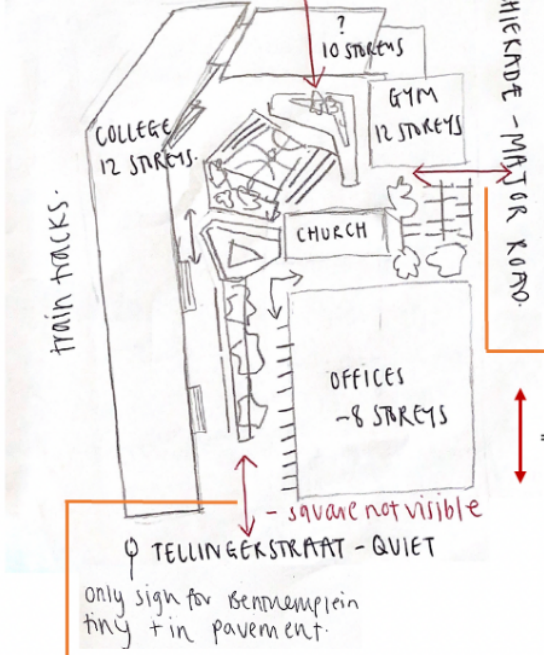 ?
10 STOREYS
GYM
12 STOREYS
COLLEGE
12 STOREYS.
CHURCH
HIEKADE - MAJOR ROAD.
train tracks.
OFFICES
~8 STOREYS
- square not visible
TELLINGERSTRAAT - QUIET
only sign for Benthemplein
tiny + in pavement.